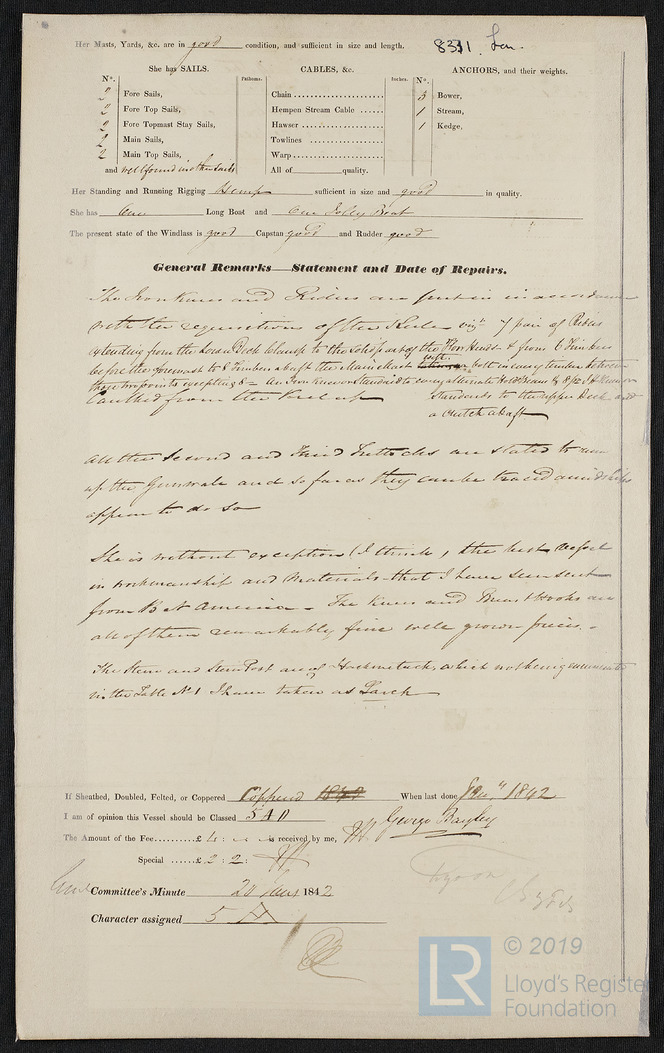 Her Masts, Yards, &c. are in good condition, and sufficient in size and length. 8331 Lon.
She has SAILS. CABLES, &c. ANCHORS, and their weights.
N°. Fathoms. Inches. N°.
2 Fore Sails, Chain 3 Bower,
2 Fore Top Sails, Hempen Stream Cable 1 Stream,
2 Fore Topmast Stay Sails, Hawser 1 Kedge,
2 Main Sails, Towlines
2 Main Top Sails, Warp
and well found in other sails All of quality.
Her Standing and Running Rigging Hemp sufficient in size and good in quality.
She has One Long Boat and One Jolly Boat
The present state of the Windlass is good Capstan good and Rudder good
General Remarks—Statement and Date of Repairs.
The Iron Knees and Riders are put in in accordance
with the requisitions of the Rules viz 7 pair of Riders
extending from the Lower Deck Clamp to the of the Floor Heads & from 6 Timbers
before the foremast to 8 Timbers abaft the Main Mast both in every timber between
these two points excepting 8 = An Iron Knee or Standard to every alternate Hold Beam &
Caulked from the Keel up Standards to the upper Deck and
a crutch abaft
All the Second and Third Futtocks are stated to run
up the Gunwale and so far as they can be traced amidships
appear to do so
She is without exception (I think, the best Vessel
in workmanship and Materials that I have seen sent
from B N America - The Knees and Breast Hooks are
all of them remarkably fine well grown pieces. -
The Stem and Stern Post are of Hackmetack, which not being enumerated
in the Table N° 1 I have taken as Larch
If Sheathed, Doubled, Felted, or Coppered Coppered 1842 When last done Jany 1842
I am of opinion this Vessel should be Classed 5 A 1
George Bayley
The Amount of the Fee £ 4 : is received by me,
Special £ 2 : 2 :
Committee's Minute 20 1842
Character assigned 5 A
© 2019
LR
Lloyd's Register
Foundation